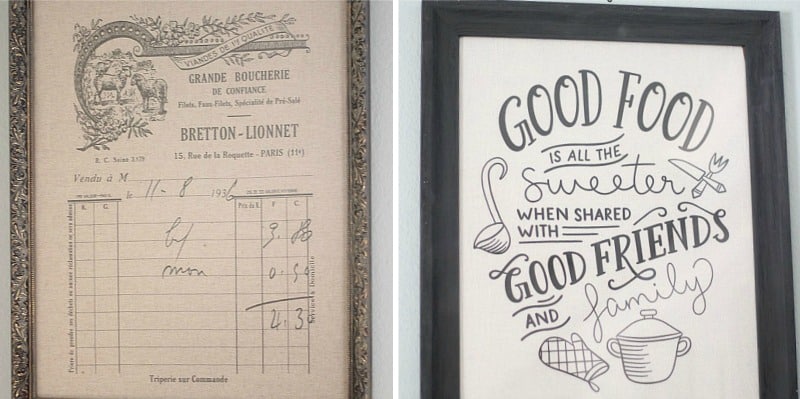 VIANDES DE 1re QUALITÉ
GRANDE BOUCHERIE
DE CONFIANCE
Filets, Faux-Filets, Spécialité de Pré-Salé
BRETTON-LIONNET
R. C. Seine 2.179
15, Rue de la Roquette - PARIS (11e)
Vendu à M
le 11-8 1936
K. G. Prix du K. F. C.
mou
Service à Domicile
Triperie sur Commande
GOOD FOOD
IS ALL THE
sweeter
WHEN SHARED
WITH
GOOD FRIENDS
AND family